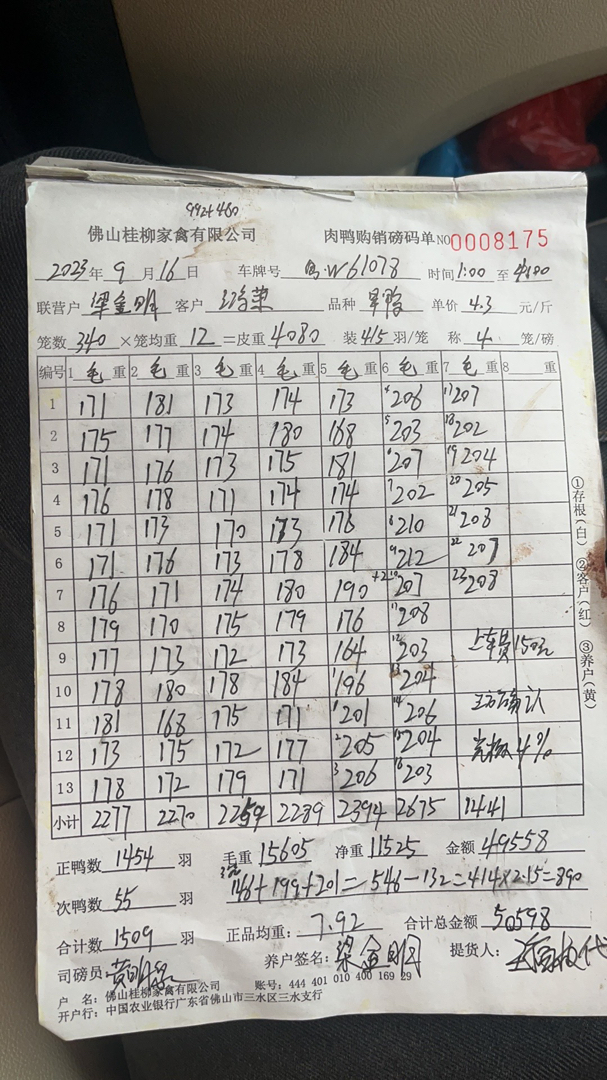 992+460
佛山桂柳家禽有限公司 肉鸭购销磅码单 NO 0008175
2023年9月16日 车牌号 W61078 时间1:00至4:00
联营户 梁金明 客户 品种 单价 4.3 元/斤
笼数 340 ×笼均重 12 =皮重 4080 装 4/5 羽/笼 称 4 笼/磅
编号 1 毛重 2 毛重 3 毛重 4 毛重 5 毛重 6 毛重 7 毛重 8 重
1 171 181 173 174 173 4 206 17 207
2 175 177 174 180 168 5 203 18 202
3 171 176 173 175 181 6 207 19 204
4 176 178 171 174 174 7 202 20 205
5 171 173 170 173 176 8 210 21 208
6 171 176 173 178 184 9 212 22 207
7 176 171 174 180 190 207 23 208
8 179 170 175 179 176 11 208
9 177 173 172 173 164 12 203 上车费150元
10 178 180 178 184 1 196 13 204
11 181 168 175 171 1 201 14 206 确认
12 173 175 172 177 2 205 15 204 4%
13 178 172 179 171 3 206 16 203
小计 2277 2270 2259 2289 2394 2675 1441
正鸭数 1454 羽 毛重 15605 净重 11525 金额 49558
次鸭数 55 羽 146+199+201=546-132=414×2.15=890
合计数 1509 羽 正品均重: 7.92 合计总金额 50598
司磅员 养户签名: 梁金明 提货人:
户 名: 佛山桂柳家禽有限公司 账号: 444 401 010 400 169 29
开户行: 中国农业银行广东省佛山市三水区三水支行
①存根(白) ②客户(红) ③养户(黄)